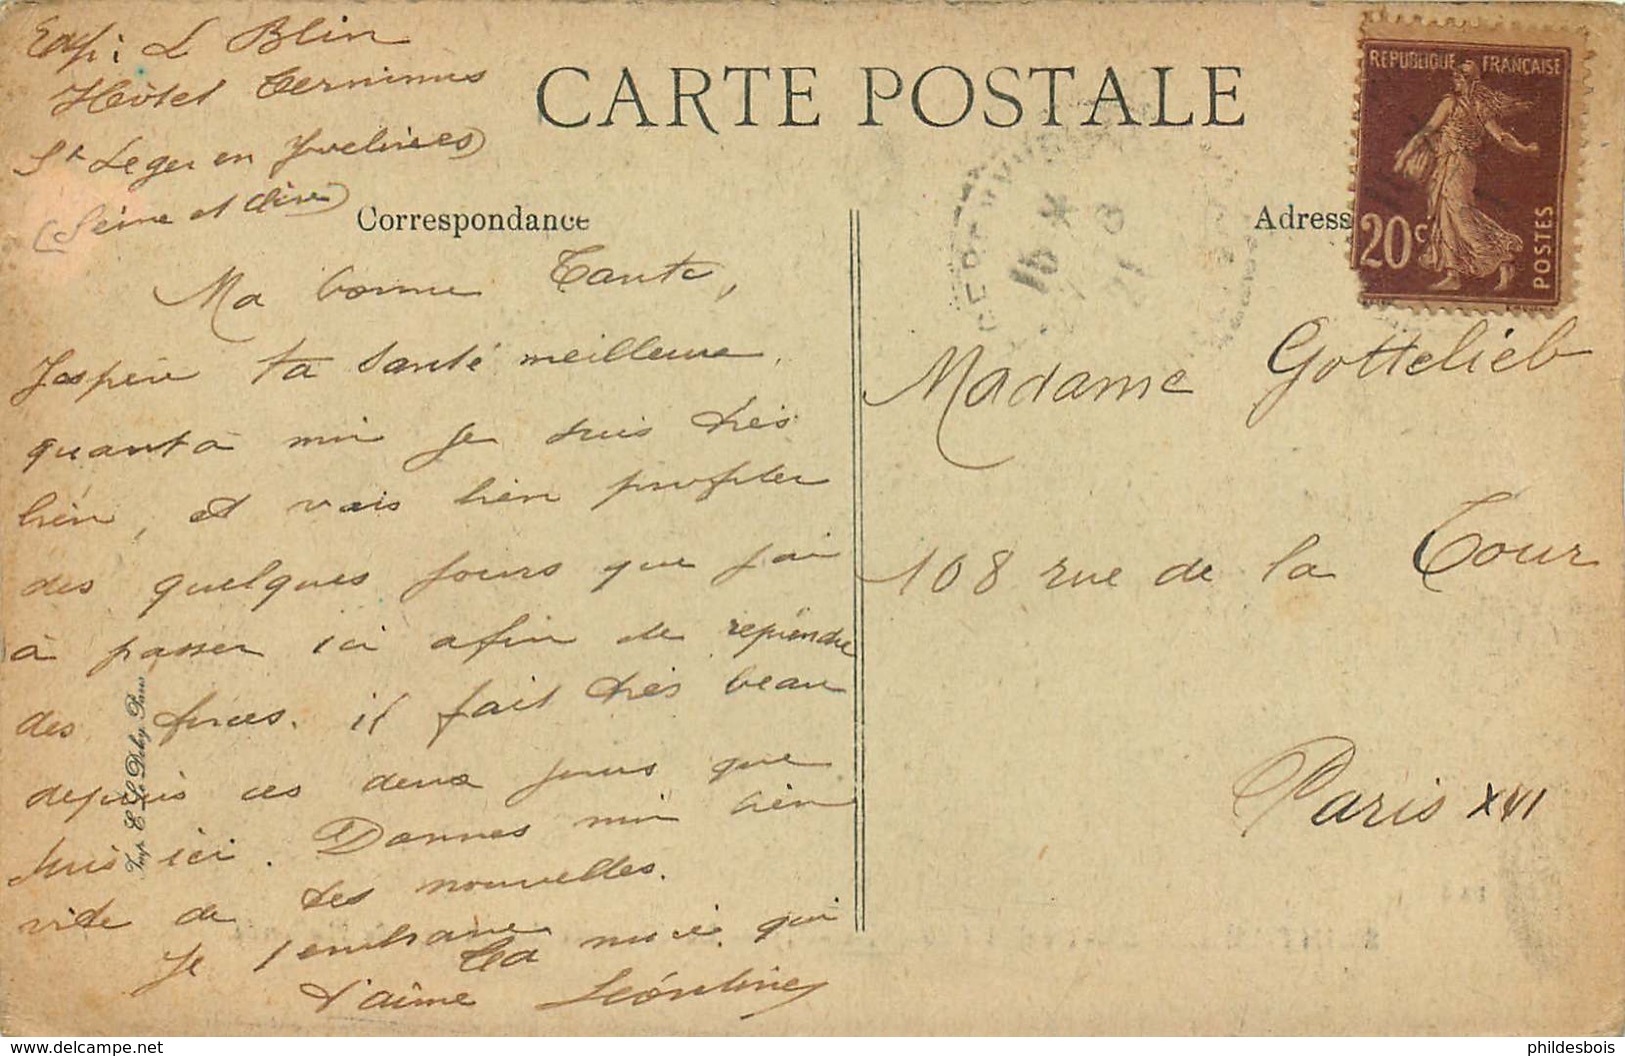 Exp: L Blin
Hôtel Terninus
St Leger en Yvelines
(Seine et Oise)
CARTE POSTALE
Correspondance
Adress
REPUBLIQUE FRANÇAISE
20c
POSTES
Ma bonne Tante,
Jespère ta santé meilleure,
quant à moi je suis très
bien, et vais bien profiter
des quelques jours que j'ai
à passer ici afin de reprendre
des forces. il fait très beau
depuis ces deux jours que
suis ici. Donnes moi bien
vite de tes nouvelles.
Je t'embrasse
Ta nièce qui
t'aime Léontine
Madame Gottelieb
108 rue de la Tour
Paris XVI
Imp. E. Le Deley, Paris
delcampe.net
phildesbois